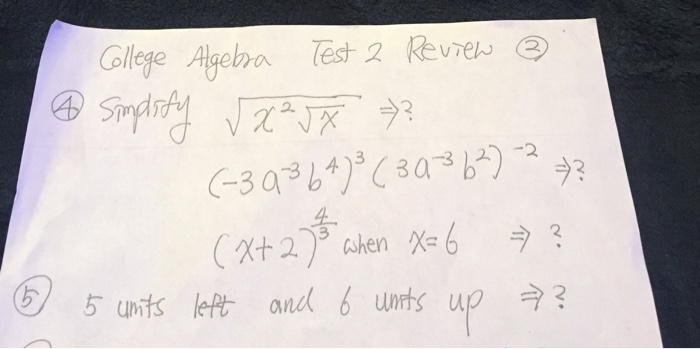 College Algebra Test 2 Review ②
④ Simplify √(x²√x) ⇒?
(-3a⁻³b⁴)³(3a⁻³b²)⁻² ⇒?
(x+2)^(4/3) when x=6 ⇒ ?
⑤ 5 units left and 6 units up ⇒?